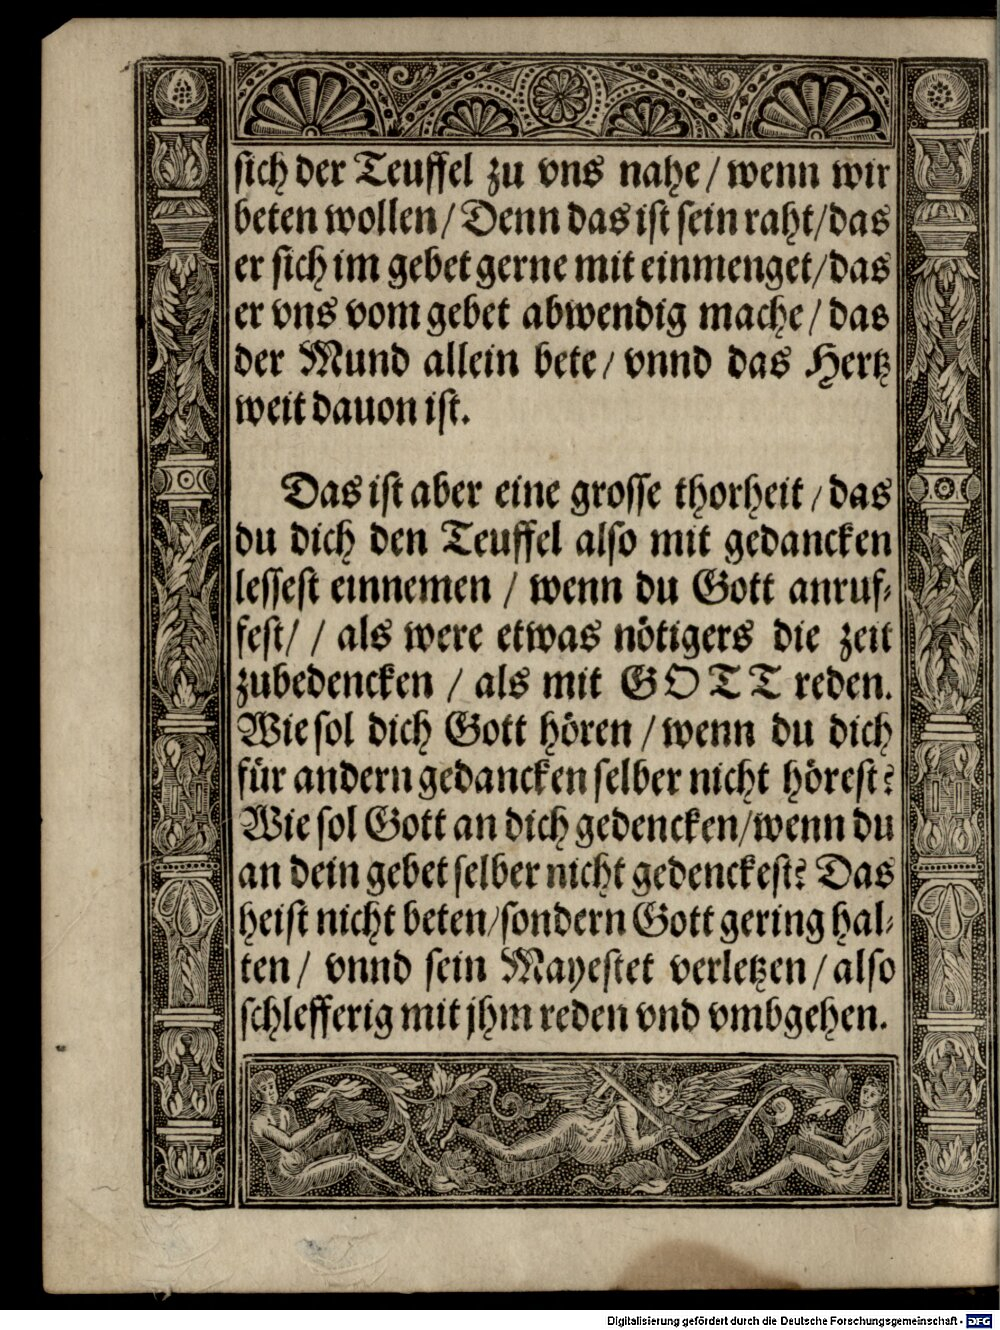 sich der Teuffel zu vns nahe / wenn wir
beten wollen / Denn das ist sein raht / das
er sich im gebet gerne mit einmenget / das
er vns vom gebet abwendig mache / das
der Mund allein bete / vnnd das Hertz
weit dauon ist.
Das ist aber eine grosse thorheit / das
du dich den Teuffel also mit gedancken
lessest einnemen / wenn du Gott anruf-
fest / / als were etwas nötigers die zeit
zubedencken / als mit GOTT reden.
Wie sol dich Gott hören / wenn du dich
für andern gedancken selber nicht hörest?
Wie sol Gott an dich gedencken / wenn du
an dein gebet selber nicht gedenckest? Das
heist nicht beten / sondern Gott gering hal-
ten / vnnd sein Mayestet verletzen / also
schlefferig mit jhm reden vnd vmbgehen.
Digitalisierung gefördert durch die Deutsche Forschungsgemeinschaft - DFG